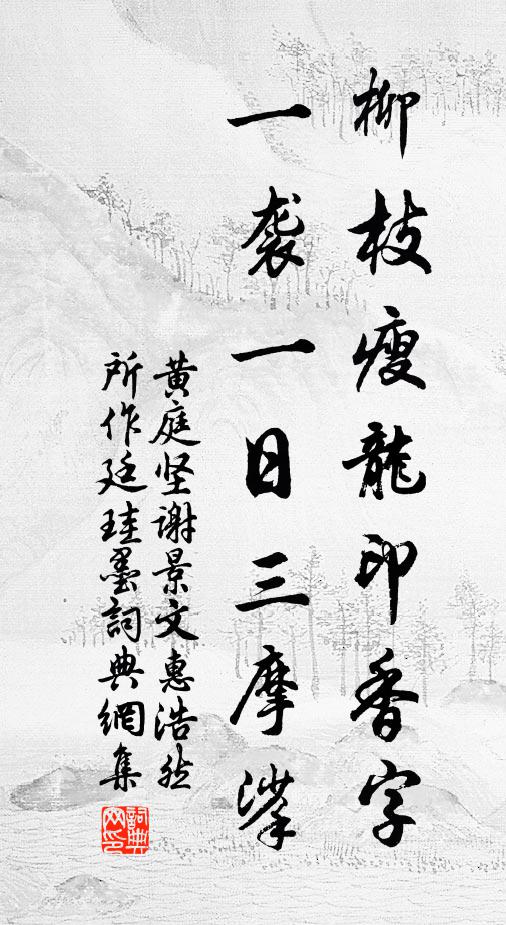 柳枝瘦龍印香字
一袭一日三摩挲
黄庭坚谢景文惠浩然
所作廷珪墨詞典網集
詞典网印